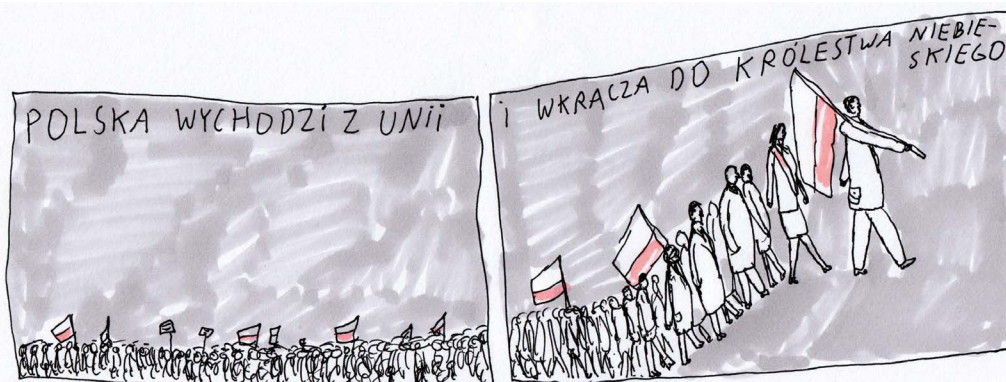 POLSKA WYCHODZI Z UNII
I WKRACZA DO KRÓLESTWA NIEBIE-
SKIEGO